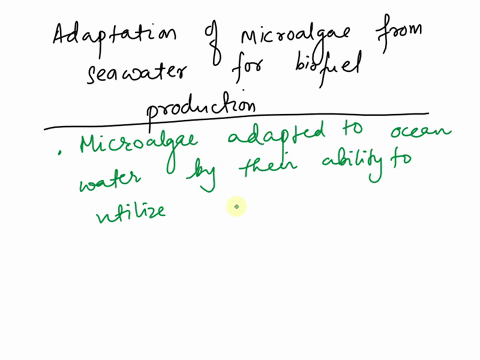 Adaptation of Microalgae from
seawater for biofuel
production
. Microalgae adapted to ocean
water by their ability to
utilize